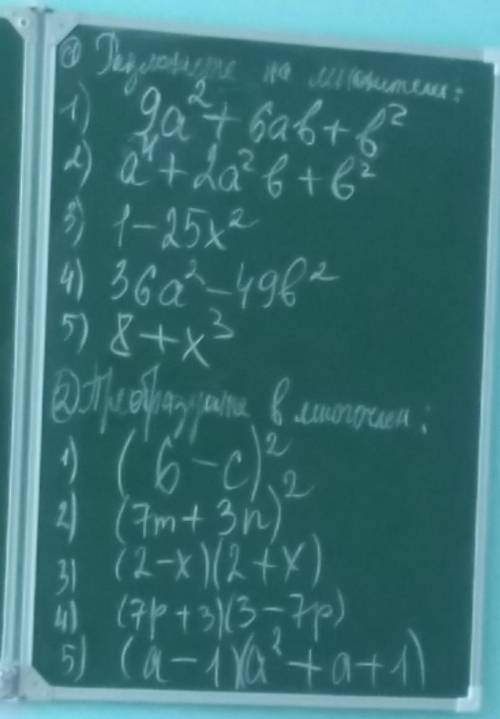 ① Разложите на множители:
1) 9a² + 6ab + b²
2) a⁴ + 2a²b + b²
3) 1 - 25x²
4) 36a² - 49b²
5) 8 + x³
② Преобразуйте в многочлен:
1) (6 - c)²
2) (7m + 3n)²
3) (2 - x)(2 + x)
4) (7p + 3)(3 - 7p)
5) (a - 1)(a² + a + 1)